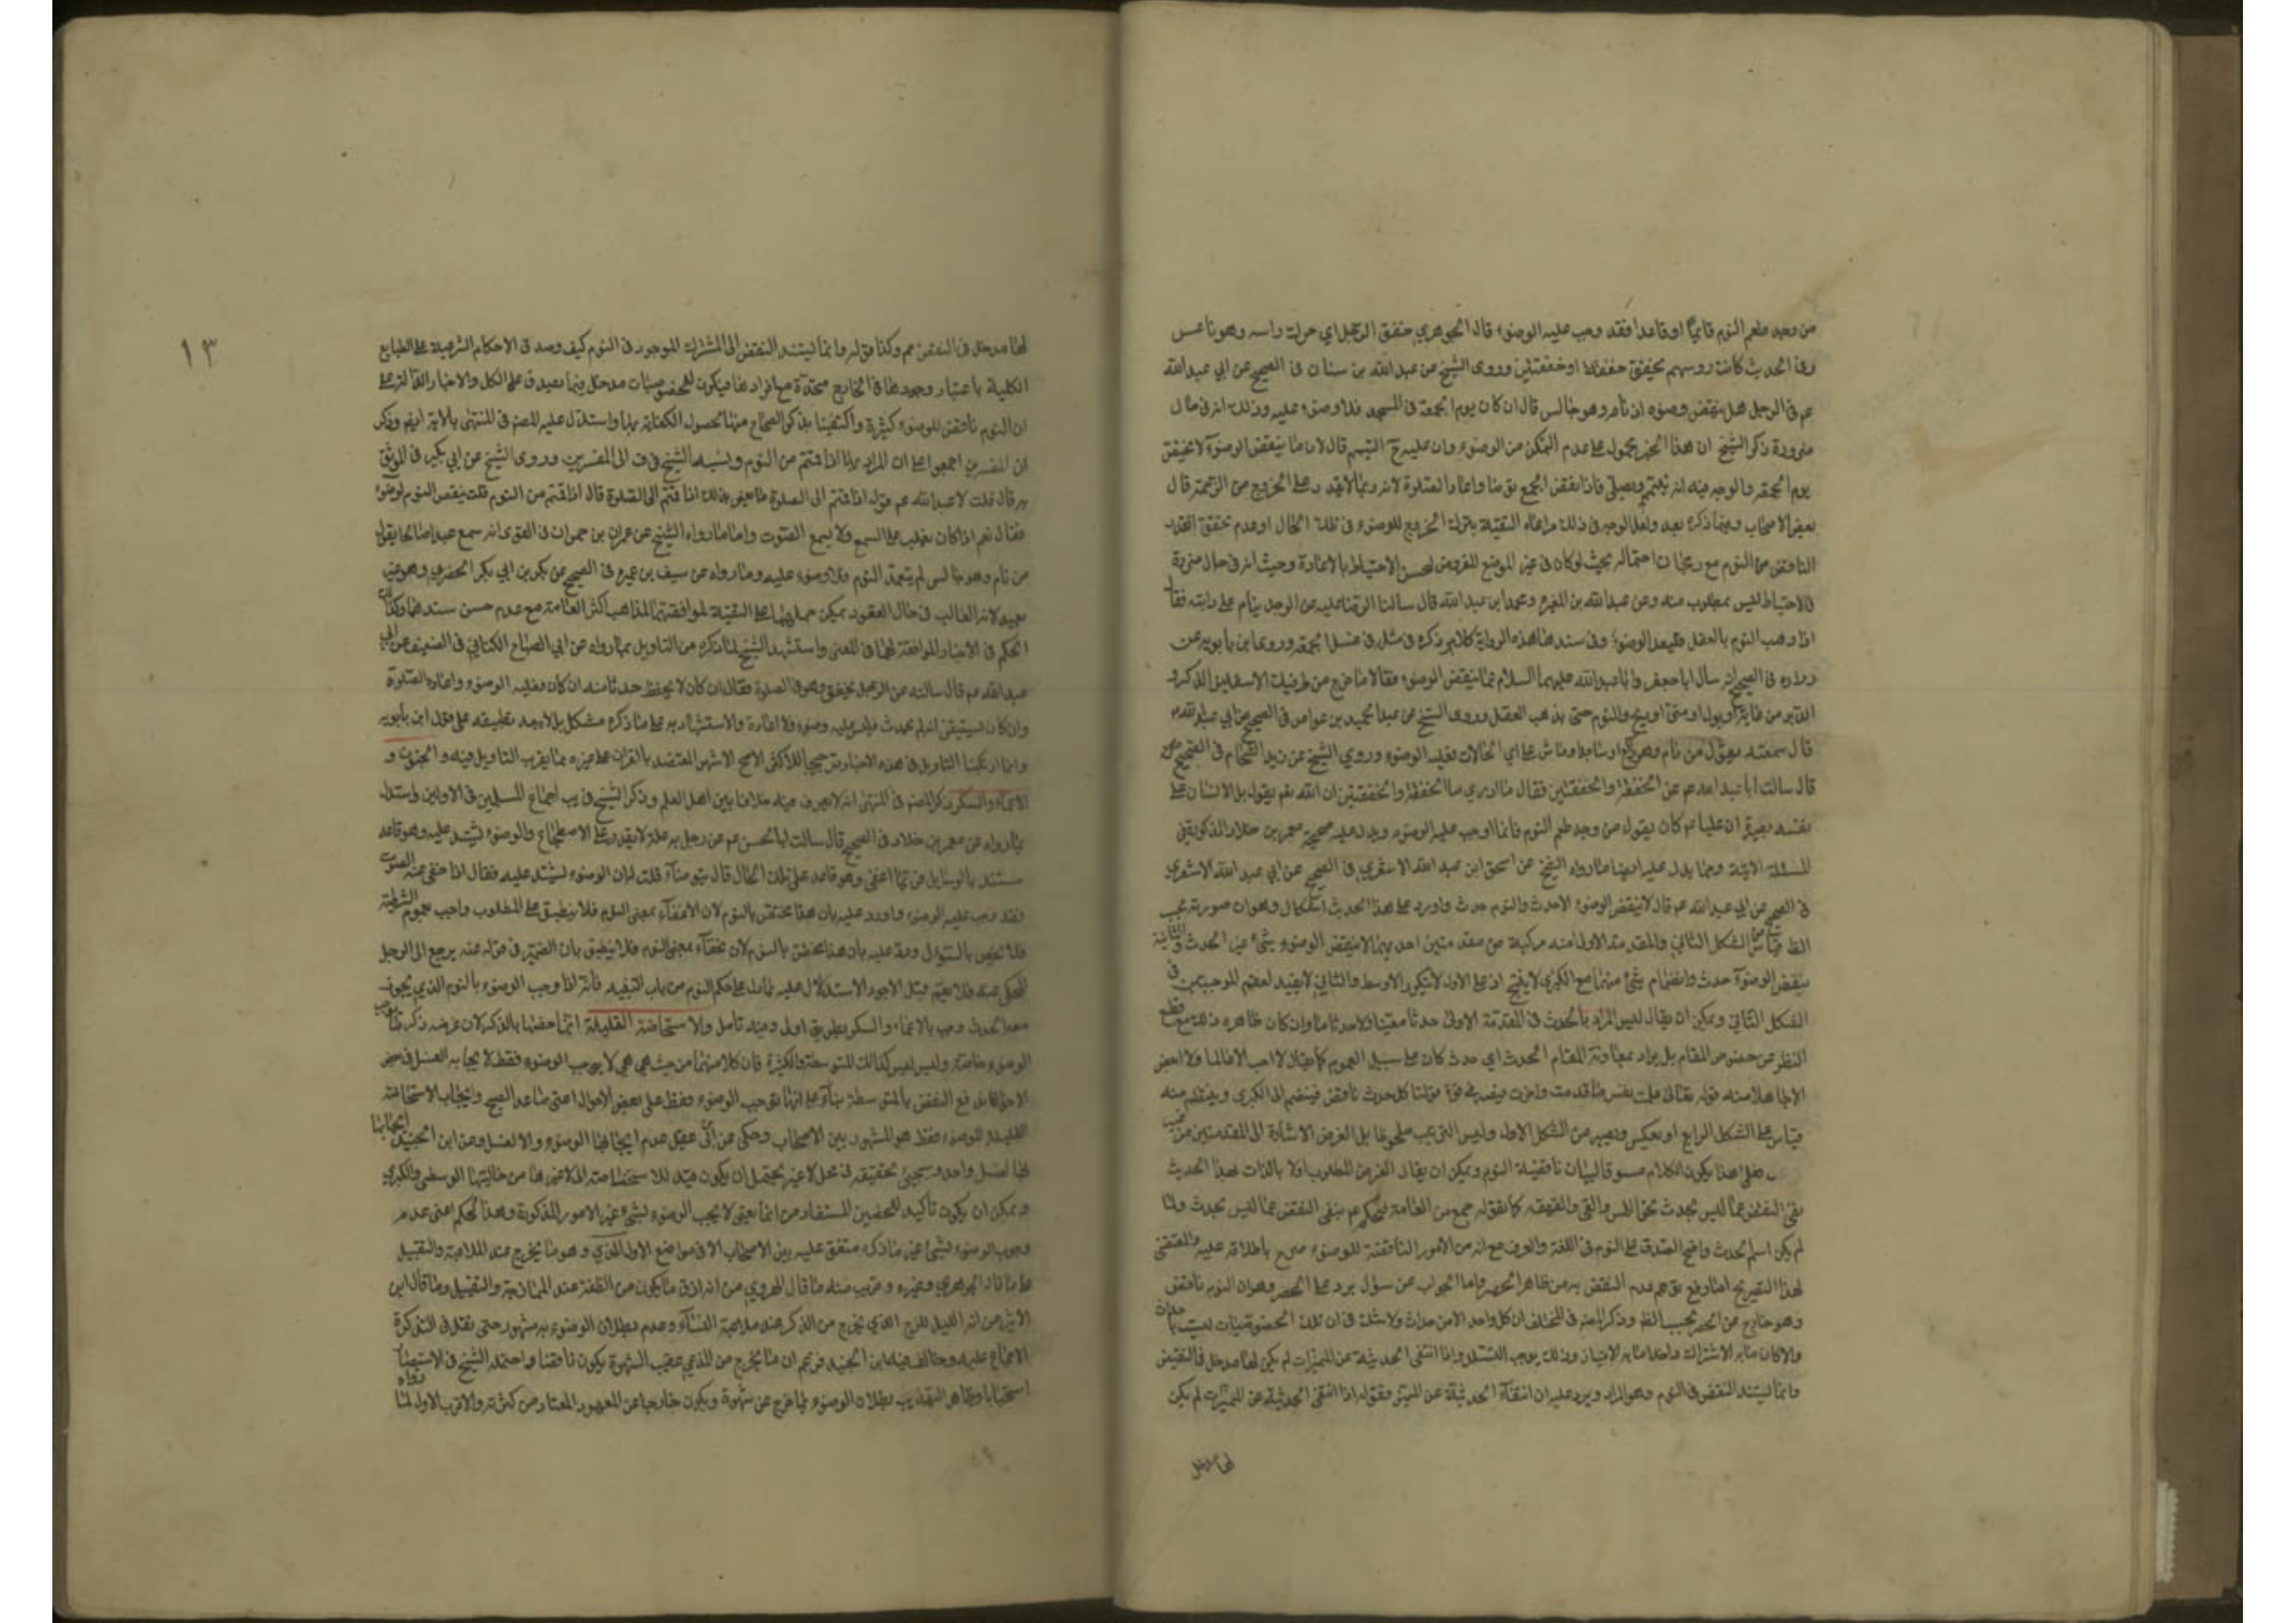 من وجد طعم النوم قائما او قاعدا فقد وجب عليه الوضوء قال الجوهري خفق الرجل اي حرك راسه وهو ناعس
وفي الحديث كانت روسهم تخفق خفقة او خفقتين وروى الشيخ عن عبد الله بن سنان في الصحيح عن ابي عبد الله
عم في الرجل هل ينقض وضوءه اذا نام وهو جالس قال ان كان يوم الجمعة في المسجد فلا وضوء عليه وذلك انه في حال
ضرورة ذكر الشيخ ان هذا الخبر محمول على عدم التمكن من الوضوء وان عليه ح التيمم قال لان ما ينقض الوضوء لا يختص
يوم الجمعة والوجه فيه انه يتيمم ويصلي فاذا انفض الجمع توضأ واعاد الصلوة لانه ربما لا يقدر على الخروج من الزحمة قال
بعض الاصحاب وفيما ذكره بعد ولعل الوجه في ذلك مراعاة التقية بترك الخروج للوضوء في تلك الحال او عدم تحقق القدر
الناقض من النوم مع رجحان احتماله بحيث لو كان في غير الموضع المفروض لحسن الاحتياط بالاعادة وحيث انه في حال ضرورة
فالاحتياط ليس بمطلوب منه وعن عبد الله بن المغيرة ومحمد ابن عبد الله قال سالنا الرضا عليه عن الرجل ينام على دابته فقال
اذا ذهب النوم بالعقل فليعد الوضوء وفي سند هذه الرواية كلام ذكره في مثله في غسل الجمعة وروى ابن بابويه عن
زرارة في الصحيح انه سال ابا جعفر وابا عبد الله عليهما السلام عما ينقض الوضوء فقالا ما خرج من طرفيك الاسفلين الذكر و
الدبر من غائط او بول او مني او ريح والنوم حتى يذهب العقل وروى الشيخ عن عبد الحميد بن عواض في الصحيح عن ابي عبد الله عم
قال سمعته يقول من نام وهو راكع او ساجد او ماش على اي الحالات فعليه الوضوء وروي الشيخ عن زيد الشحام في الصحيح
قال سالت ابا عبد الله عم عن الخفقة والخفقتين فقال ما ادري ما الخفقة والخفقتين ان الله تعم يقول بل الانسان على
نفسه بصيرة ان عليا عم كان يقول من وجد طعم النوم فانما اوجب عليه الوضوء ويدل عليه صحيحة معمر بن خلاد المذكورة في
المسئلة الاتية ومما يدل عليه ايضا ما رواه الشيخ عن اسحق ابن عبد الله الاشعري في الصحيح عن ابي عبد الله الاشعري
في الصحيح عن ابي عبد الله عم قال لا ينقض الوضوء الا حدث والنوم حدث واورد على هذا الحديث اشكال وهو ان صورته بحسب
الظ قياس من الشكل الثاني والمقدمة الاولى منه مركبة من مقدمتين احديهما لا ينقض الوضوء شئ غير الحدث والثانية
ينقض الوضوء حدث وانضمام شئ منهما مع الكبرى لا ينتج اذ على الاول لا يتكرر الاوسط والثاني لا يفيد لعقم الموجبتين في
الشكل الثاني ويمكن ان يقال ليس المراد بالحدث في المقدمة الاولى حدثا معينا ولا حدثا ما وان كان ظاهره ذلك مع قطع
النظر عن خصوص المقام بل يراد بمعاونة المقام الحدث اي حدث كان على سبيل العموم كما يقال لا احب الا العالم ولا ابغض
الا الجاهل ومنه قوله تعالى علمت نفس ما قدمت واخرت فيصير في قوة قولنا كل حدث ناقض فينضم الى الكبرى وينتظم منه
قياس على الشكل الرابع او يعكس ويصير من الشكل الاول وليس الترتيب ملحوظا بل الغرض الاشارة الى المقدمتين
فعلى هذا يكون الكلام مسوقا لبيان ناقضية النوم ويمكن ان يقال الغرض المطلوب اولا بالذات لهذا الحديث
نفي النقض عما ليس بحدث نحو اللمس والقي والقهقهة كما يقوله جمع من العامة فحكم عم بنفي النقض عما ليس بحدث ولما
لم يكن اسم الحدث واضح الصدق على النوم في اللغة والعرف مع انه من الامور الناقضة للوضوء صرح باطلاقه عليه والمقتضي
لهذا التصريح اما رفع توهم عدم النقض به من ظاهر الحصر واما الجواب عن سؤال يرد على الحصر وهو ان النوم ناقض
وهو خارج عن الحصر بحسب الظ وذكر المص في المختلف ان كل واحد الاحداث ولا شك في ان تلك الخصوصيات ليست احداث
والا كان ما به الاشتراك داخلا فيما به الامتياز وذلك يوجب التسلسل واذا انتفى الحدثية عن المميزات لم يكن لها مدخل في النقض
وانما يستند النقض في النوم وهو المراد ويرد عليه ان انتفاء الحدثية عن المميز وقوله اذا انتفى الحدثية عن المميزات لم يكن
لها مدخل
١٣
لها مدخل في النقض عم وكذا قوله وانما يستند النقض الى المشترك الموجود في النوم كيف وصدق الاحكام الشرعية على الطبايع
الكلية باعتبار وجودها في الخارج متحدة مع افرادها فيكون للخصوصيات مدخل فيما يصدق على الكل والاخبار الدالة على
ان النوم ناقض للوضوء كثيرة واكتفينا بذكر الصحاح منها لحصول الكفاية بها واستدل عليه المص في المنتهى بالاية ايضم وذكر
ان المفسرين اجمعوا على ان المراد بها اذا قمتم من النوم ونسبه الشيخ في ف الى المفسرين وروى الشيخ عن ابي بكير في الموثق
به قال قلت لابي عبد الله عم قوله اذا قمتم الى الصلوة ما يعني بذلك اذا قمتم الى الصلوة قال اذا قمتم من النوم قلت ينقض النوم الوضوء
فقال نعم اذا كان يغلب على السمع ولا يسمع الصوت واما ما رواه الشيخ عن عمران بن حمران في القوي انه سمع عبدا صالحا يقول
من نام وهو جالس لم يتعمد النوم فلا وضوء عليه وما رواه عن سيف بن عميرة في الصحيح عن بكر بن ابي بكر الحضرمي
بعيد لانه الغالب في حال القعود يمكن حملهما على التقية لموافقتهما لمذاهب اكثر العامة مع عدم حسن سندهما وكذا
الحكم في الاخبار الموافقة لهما في المعنى واستشهد الشيخ لما ذكره من التاويل بما رواه عن ابي الصباح الكناني في الضعيف عن ابي
عبد الله عم قال سالته عن الرجل يخفق وهو في الصلوة فقال ان كان لا يحفظ حدثا منه ان كان فعليه الوضوء واعادة الصلوة
وان كان يستيقن انه لم يحدث فليس عليه وضوء ولا اعادة والاستشهاد به على ما ذكره مشكل بل لا يبعد تطبيقه على قول ابن بابويه
وانما ارتكبنا التاويل في هذه الاخبار ترجيحا للاكثر الاصح الاشهر المعتضد بالقران على غيره مما يقرب التاويل فيه والجنون و
الاغماء والسكر ذكر المص في المنتهى انه لا يعرف فيه خلافا بين اهل العلم وذكر الشيخ في يب اجماع المسلمين في الاولين واستدل
بما رواه عن معمر بن خلاد في الصحيح قال سالت ابا الحسن عم عن رجل به علة لا يقدر على الاضطجاع والوضوء يشتد عليه وهو قاعد
مستند بالوسايد فربما اغفى وهو قاعد على تلك الحال قال يتوضأ قلت له ان الوضوء يشتد عليه فقال اذا خفي عنه الصوت
فقد وجب عليه الوضوء واورد عليه بان هذا مختص بالنوم لان الاغفاء بمعنى النوم فلا ينطبق على المطلوب واجيب بعموم الشرطية
فلا تخص بالسؤال ورد عليه بان هذا مختص بالنوم لان الاغفاء بمعنى النوم فلا ينطبق بان الضمير في قوله عنه يرجع الى الرجل
المحكي عنه فلا يعم قيل الاجود الاستدلال عليه بما دل على حكم النوم من باب التنبيه فانه اذا وجب الوضوء بالنوم الذي يجوز
معه الحدث وجب بالاغماء والسكر بطريق اولى وفيه تامل والاستحاضة القليلة انما خصها بالذكر لان غرضه ذكر ما يوجب
الوضوء خاصة وليس كذلك المتوسطة والكثيرة فان كلا منهما من حيث هي هي لا يوجب الوضوء فقط لايجابه الغسل في بعض
الاحوال فلا يدفع النقض بالمتوسطة بناء على انها توجب الوضوء فقط على بعض الاحوال اعني ما عدا الصبح وايجاب الاستحاضة
القليلة للوضوء فقط هو المشهور بين الاصحاب وحكي عن ابن ابي عقيل عدم ايجابها الوضوء والا الغسل وعن ابن الجنيد ايجابها
لها لغسل واحد وسيجيئ تحقيقه في محله
ويمكن ان يكون تاكيدا للحصر المستفاد من انما يعني لا يجب الوضوء لشئ غير الامور المذكورة وهذا الحكم اعني عدم
وجوب الوضوء لشئ غير ما ذكره متفق عليه بين الاصحاب الا في مواضع الاول المذي وهو ما يخرج عند الملاعبة والتقبيل
على ما قاله الجوهري وغيره وقريب منه ما قال الهروي من انه ارق ما يكون من النطفة عند الممازحة والتقبيل وما قال ابن
الاثير من انه البلل اللزج الذي يخرج من الذكر عند ملاعبة النساء وعدم بطلان الوضوء به مشهور حتى نقل في التذكرة
الاجماع عليه وخالف فيه ابن الجنيد فزعم ان ما يخرج من المذي عقيب الشهوة يكون ناقضا واحتمله الشيخ في الاستبصار
استحبابا وظاهر التهذيب بطلان الوضوء بما خرج عن شهوة ويكون خارجا عن المعهود المعتاد من كثرته والاقرب الاول لما رواه